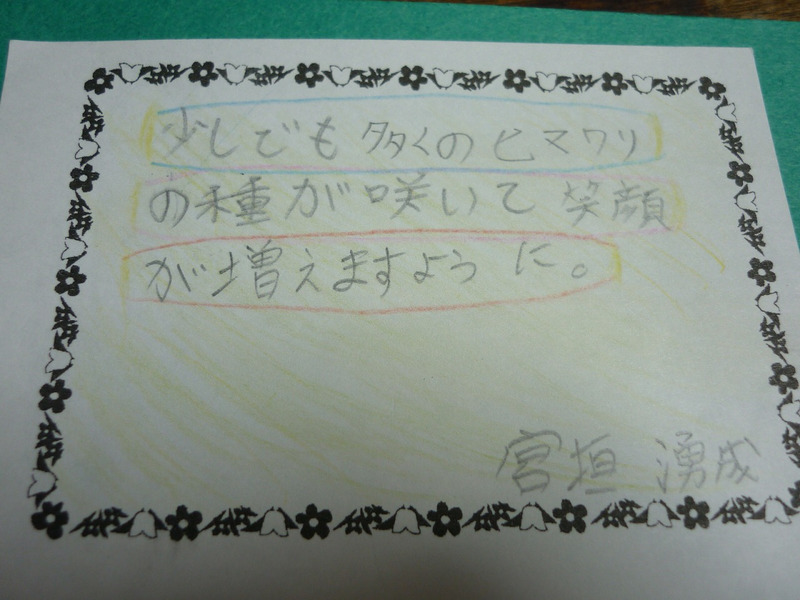 少しでも多くのヒマワリ
の種が咲いて笑顔
が増えますように。
宮垣 湧成